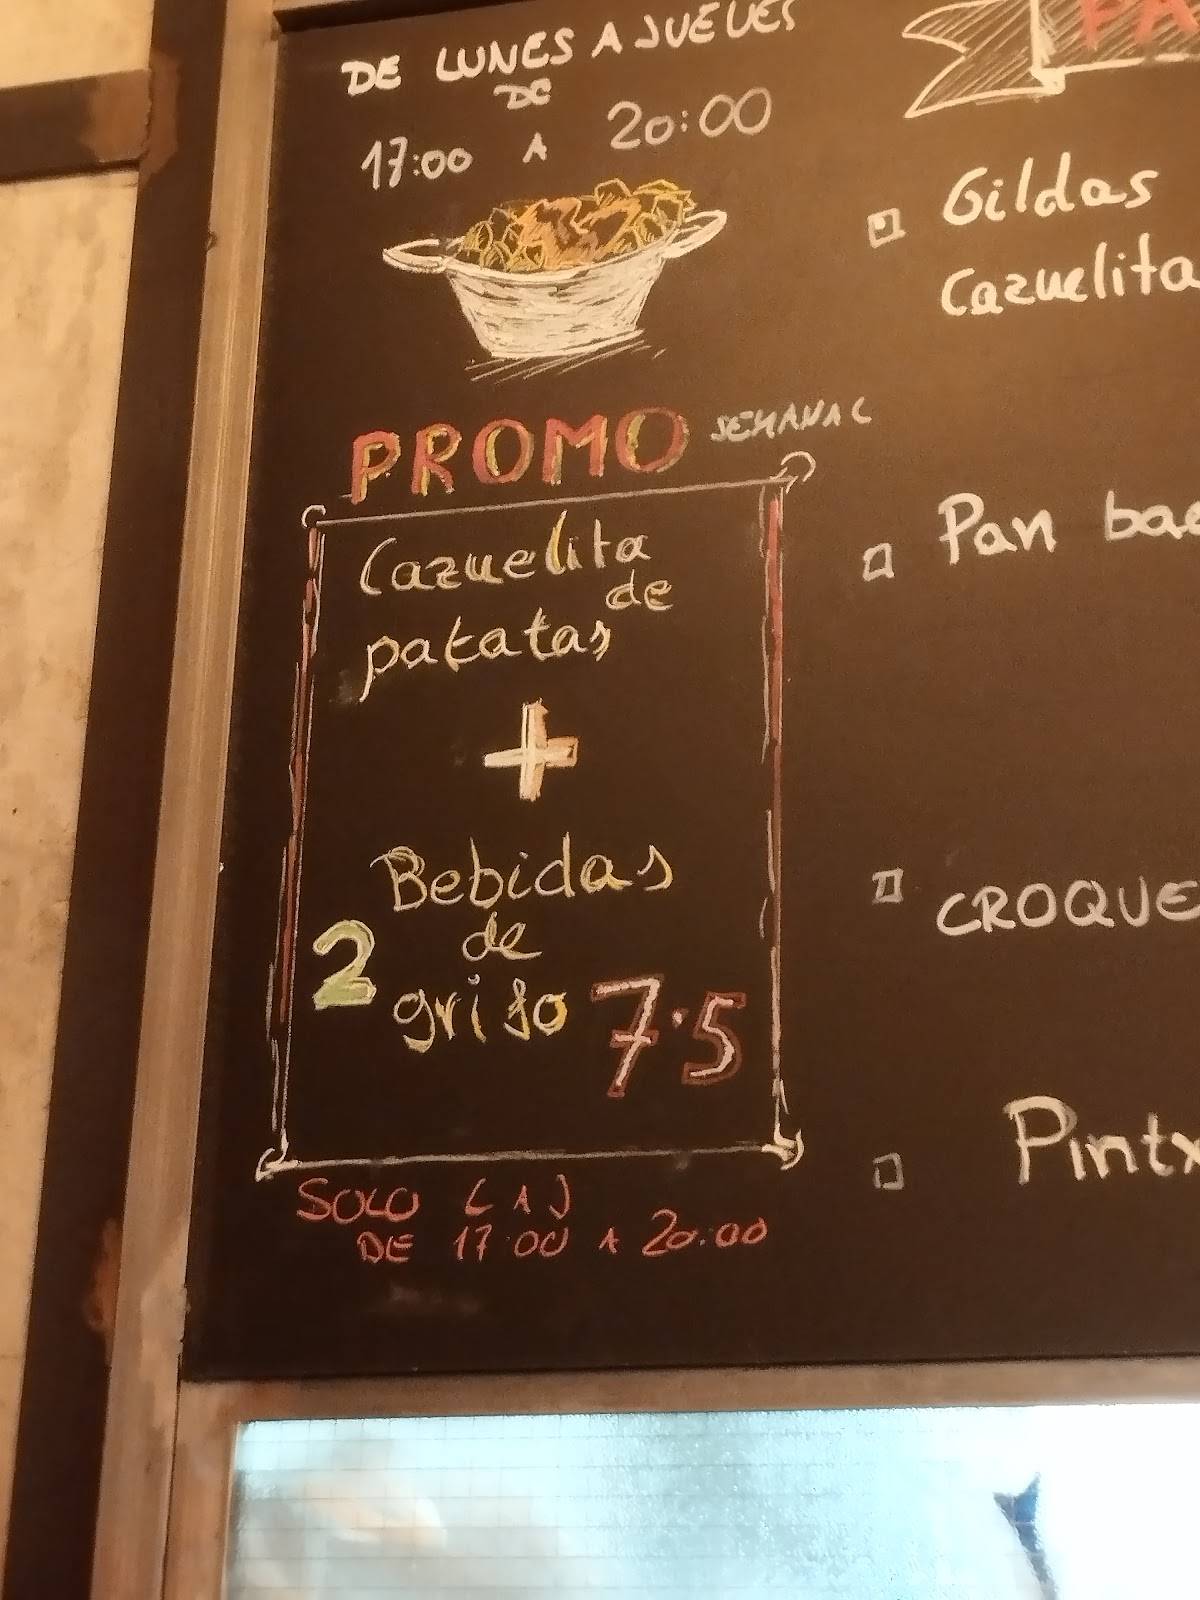 DE LUNES A JUEVES
DE
17:00 A 20:00
PROMO SEMANAL
Cazuelita
de
patatas
+
2 Bebidas
de
grifo 7.5
SOLO L A J
DE 17:00 A 20:00
PA
Gildas
Cazuelita
Pan bao
CROQUE
Pintx